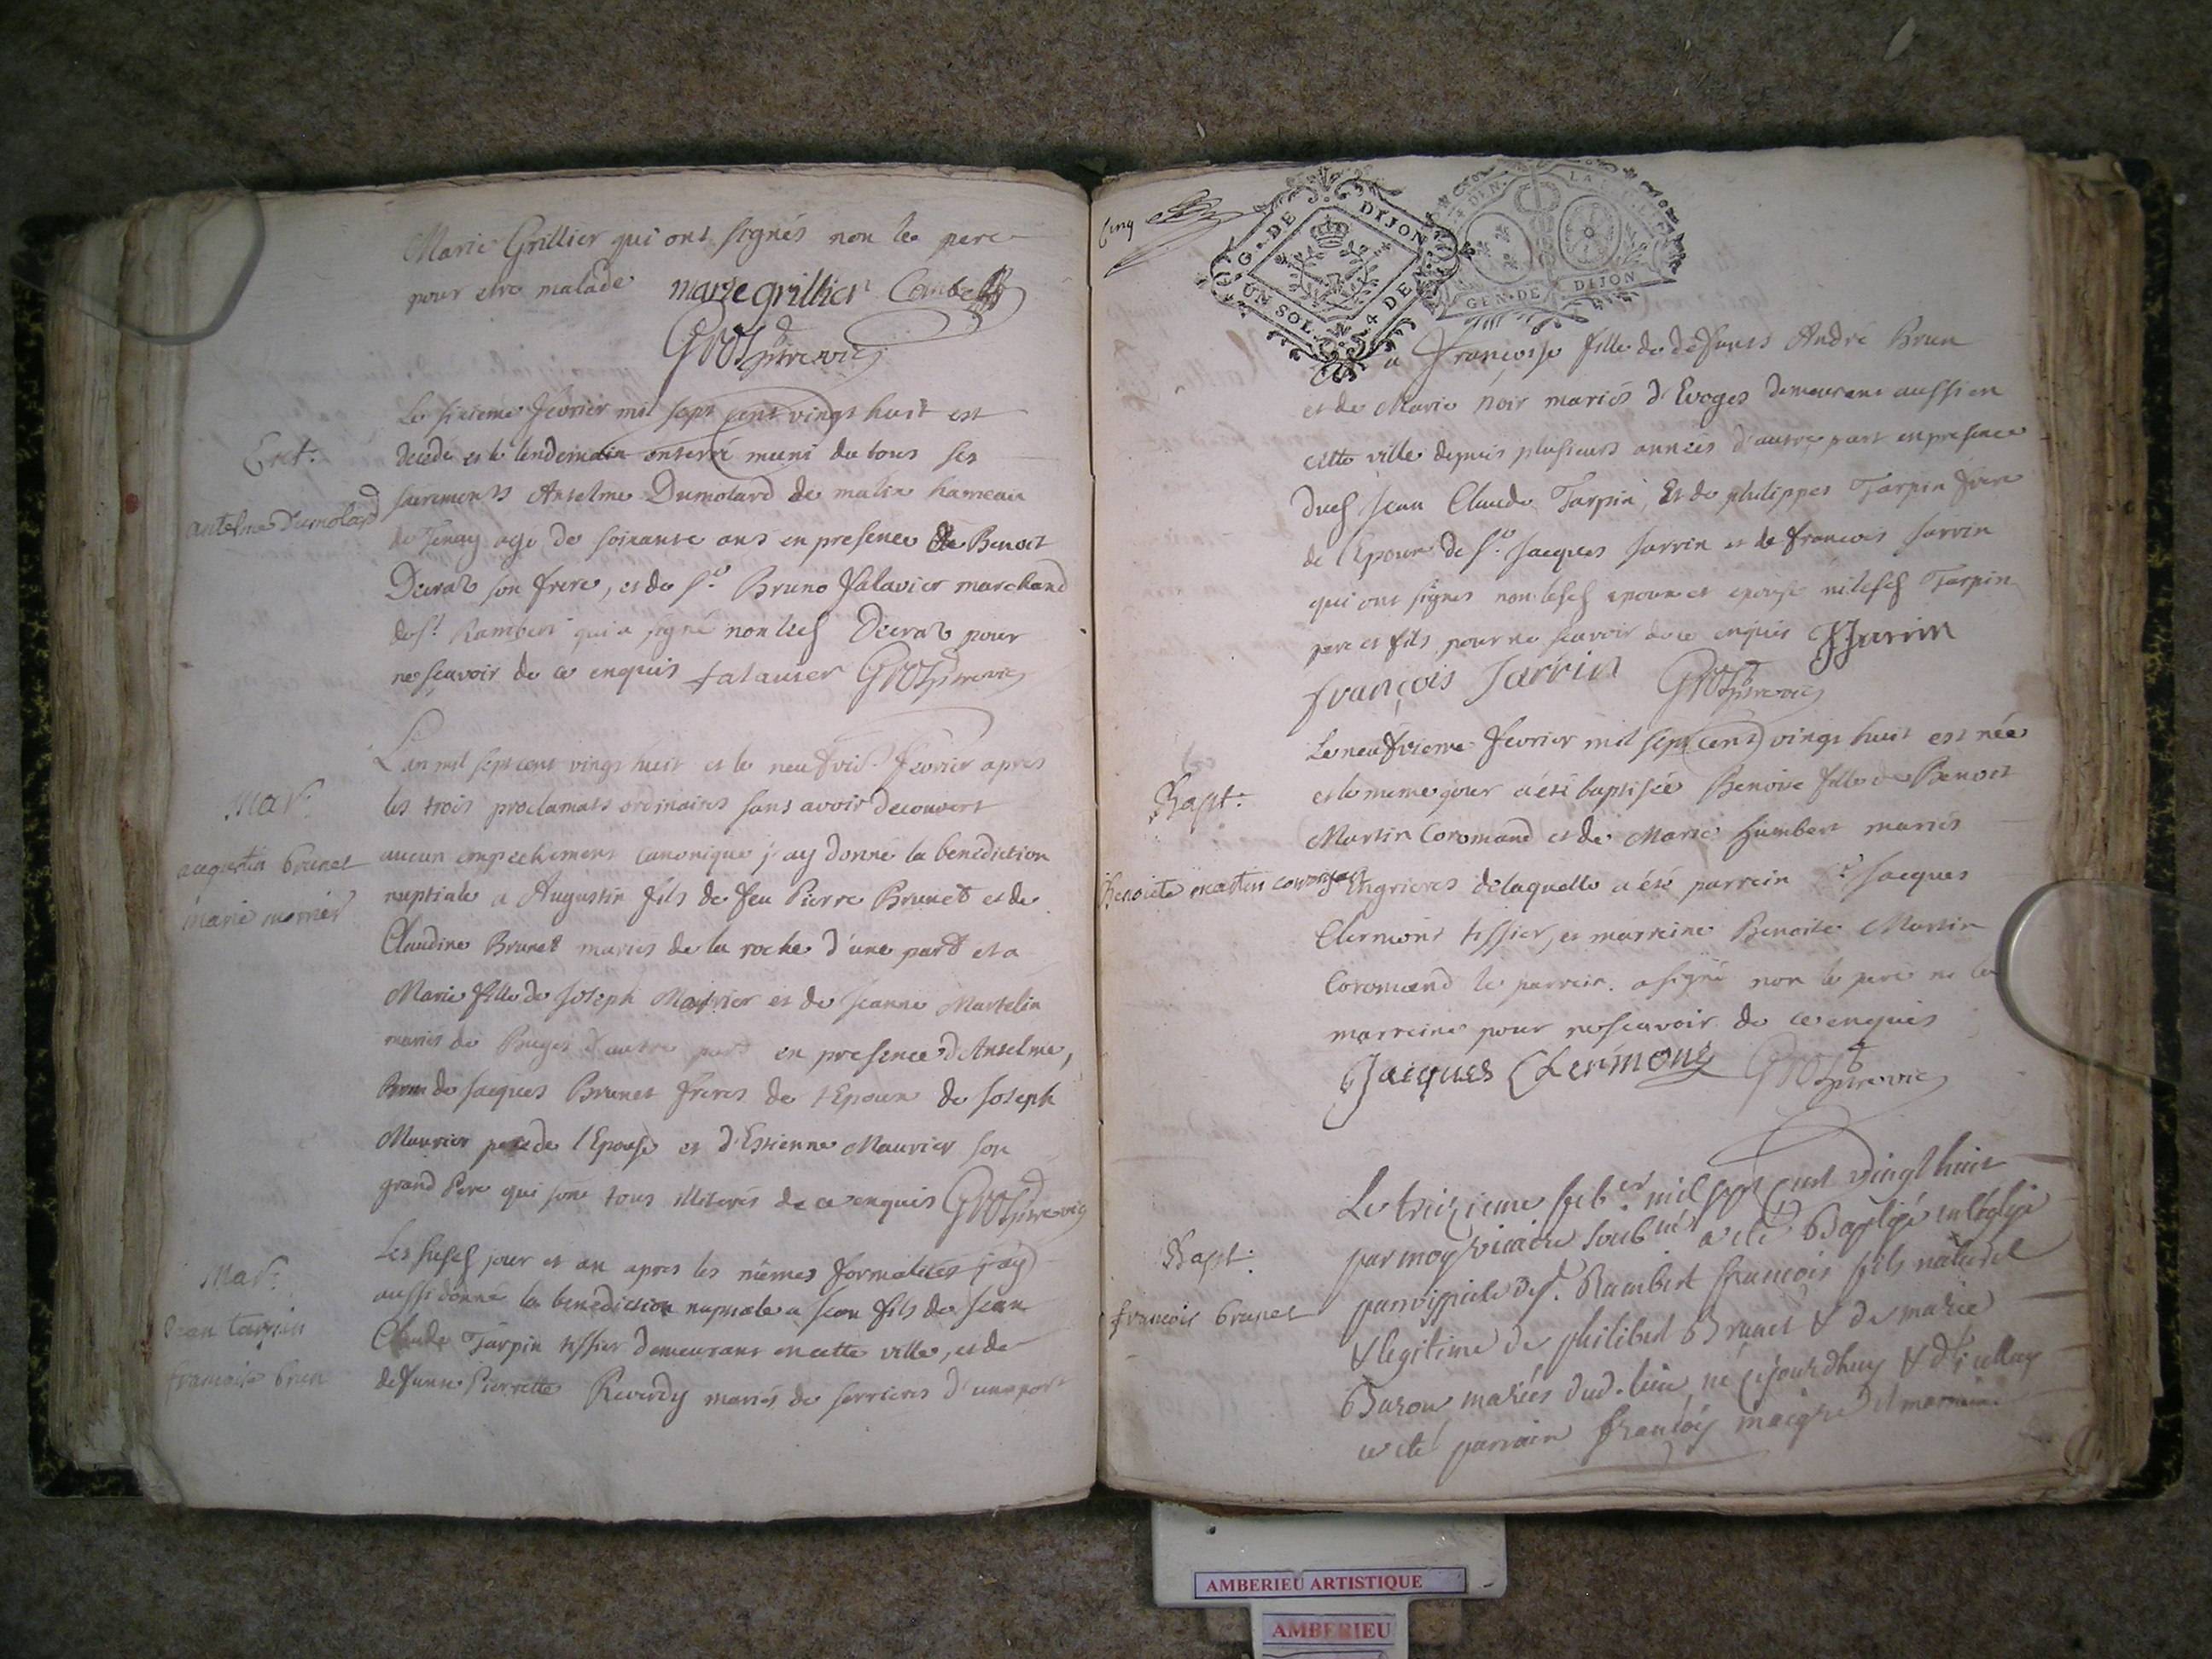 Marie Grillier qui ont signés non le pere
pour etre malade marie grillier
Gros ptre vic
Ent.
antelme dumolard
Le sixieme fevrier mil sept cent vingt huit est
decedé et le lendemain enterré muni de tous ses
sacrements Antelme Dumolard de malin hameau
de Tenay agé de soixante ans en presence de Benoit
Decrat son frere, et de sr. Bruno falavier marchand
de st. Rambert qui a signé non led Decrat pour
ne scavoir de ce enquis falavier Gros ptre vic
mar.
augustin brunet
marie mornier
L'an mil sept cent vingt huit et le neufvie. fevrier apres
les trois proclamats ordinaires sans avoir decouvert
aucun empechement canonique j'ay donné la benediction
nuptiale a Augustin fils de feu Pierre Brunet et de
Claudine Brunet mariés de la roche d'une part et a
Marie fille de Joseph et de Jeanne Martelin
mariés de d'autre part en presence d'Antelme,
de Jacques Brunet freres de l'Epoux de Joseph
Maurier pere de l'Epouse et d'Estienne Maurier son
grand Pere qui sont tous illiterés de ce enquis Gros ptre vic
mar.
Jean tarpin
francoise brun
Les susd jour et an apres les mêmes formalités j'ay
aussi donné la benediction nuptiale a Jean fils de Jean
Claude Tarpin tissier demeurant en cette ville, et de
defunte Pierrette Reverdy mariés de serrieres d'une part
Cinq
G. DE DIJON
UN SOL. N. 4 DEN.
4 DEN. LA
GEN. DE DIJON
a Françoise fille de defunts André Brun
et de Marie noir mariés d'Evoges demeurant aussi en
cette ville depuis plusieurs années d'autre part en presence
dud Jean Claude Tarpin, Et de philippes Tarpin frere
de l'Epoux de sr. Jacques Jarrin et de francois Jarrin
qui ont signés non lesd epoux et epouse ni lesd Tarpin
pere et fils pour ne scavoir de ce enquis JJarrin
françois Jarrin Gros ptre vic
Bapt.
Benoite martin coromand
Le neufvieme fevrier mil sept cent vingt huit est née
et le meme jour a été baptisée Benoite fille de Benoit
Martin Coromand et de Marie humbert mariés
d'Angrieres de laquelle a été parrein sr. Jacques
Clermont tissier, et marreine Benoite Martin
Coromand le parrein a signé non le pere ne la
marreine pour ne scavoir de ce enquis
Jacques Clermont Gros ptre vic
Bapt.
francois brunet
Le treizieme feb.er mil sept cent vingt huit
par moy vicaire soubné a été Baptisé en l'église
parroissiale de st. Rambert françois fils naturel
& legitime de philibert Brunet & de marie
Buron mariés dud. lieu, né cejourdhuy & d'icelluy
a été parrain françois maigre et marraine
AMBERIEU ARTISTIQUE
AMBERIEU